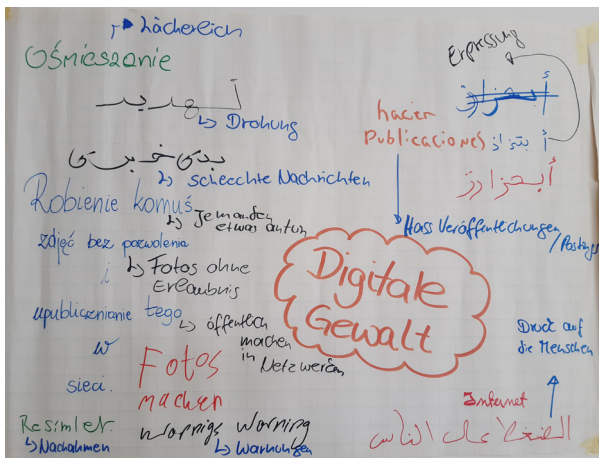 Lächerlich
Ośmieszanie
تهديد
↳ Drohung
↳ schlechte Nachrichten
Robienie komuś
↳ Jemanden
etwas antun
zdjęć bez pozwolenia
i
↳ Fotos ohne
Erlaubnis
upublicznianie tego
↳ öffentlich
machen
in
Netzwerken
w
sieci.
Fotos
machen
Resimler
↳ Nachahmen
Warning
↳ Warnungen
Erpressung
hacier
Publicaciones
Hass Veröffentlichungen
/Postings
Digitale
Gewalt
Druck auf
die Menschen
Internet
الضغط على الناس